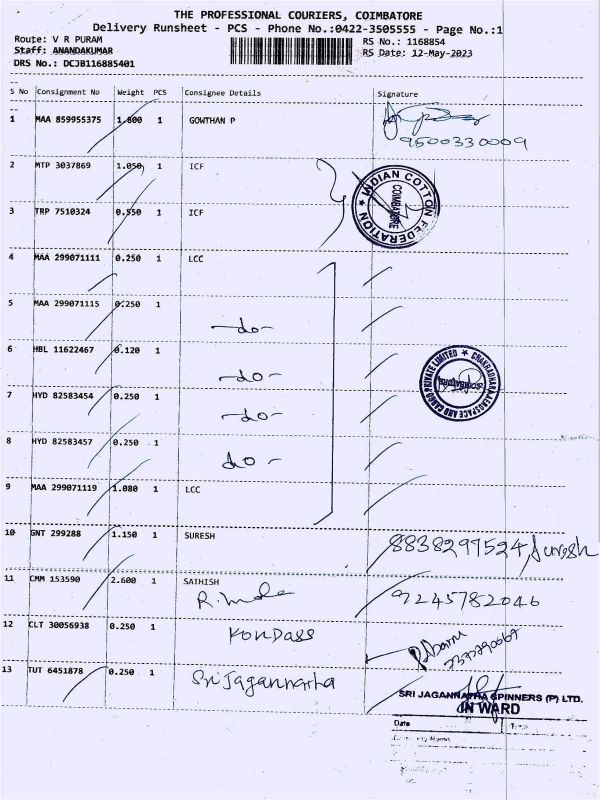 THE PROFESSIONAL COURIERS, COIMBATORE
Delivery Runsheet - PCS - Phone No.:0422-3505555 - Page No.:1
Route: V R PURAM
RS No.: 1168854
Staff: ANANDAKUMAR
RS Date: 12-May-2023
DRS No.: DCJB116885401
S No Consignment No Weight PCS Consignee Details Signature
1 MAA 859955375 1.800 1 GOWTHAN P
9500330009
2 MTP 3037869 1.050 1 ICF
INDIAN COTTON FEDERATION ★
COIMBATORE
3 TRP 7510324 0.550 1 ICF
4 MAA 299071111 0.250 1 LCC
5 MAA 299071115 0.250 1
-do-
6 HBL 11622467 0.120 1
-do-
CHAKRADHARA AEROSPACE AND CARGO PRIVATE LIMITED ★
7 HYD 82583454 0.250 1
-do-
8 HYD 82583457 0.250 1
do -
9 MAA 299071119 1.080 1 LCC
10 GNT 299288 1.150 1 SURESH
8838297524 Suresh
11 CMM 153590 2.600 1 SATHISH
9245782046
12 CLT 30056938 0.250 1
Kondass
13 TUT 6451878 0.250 1
Sri Jagannatha
SRI JAGANNATHA SPINNERS (P) LTD.
IN WARD
Date